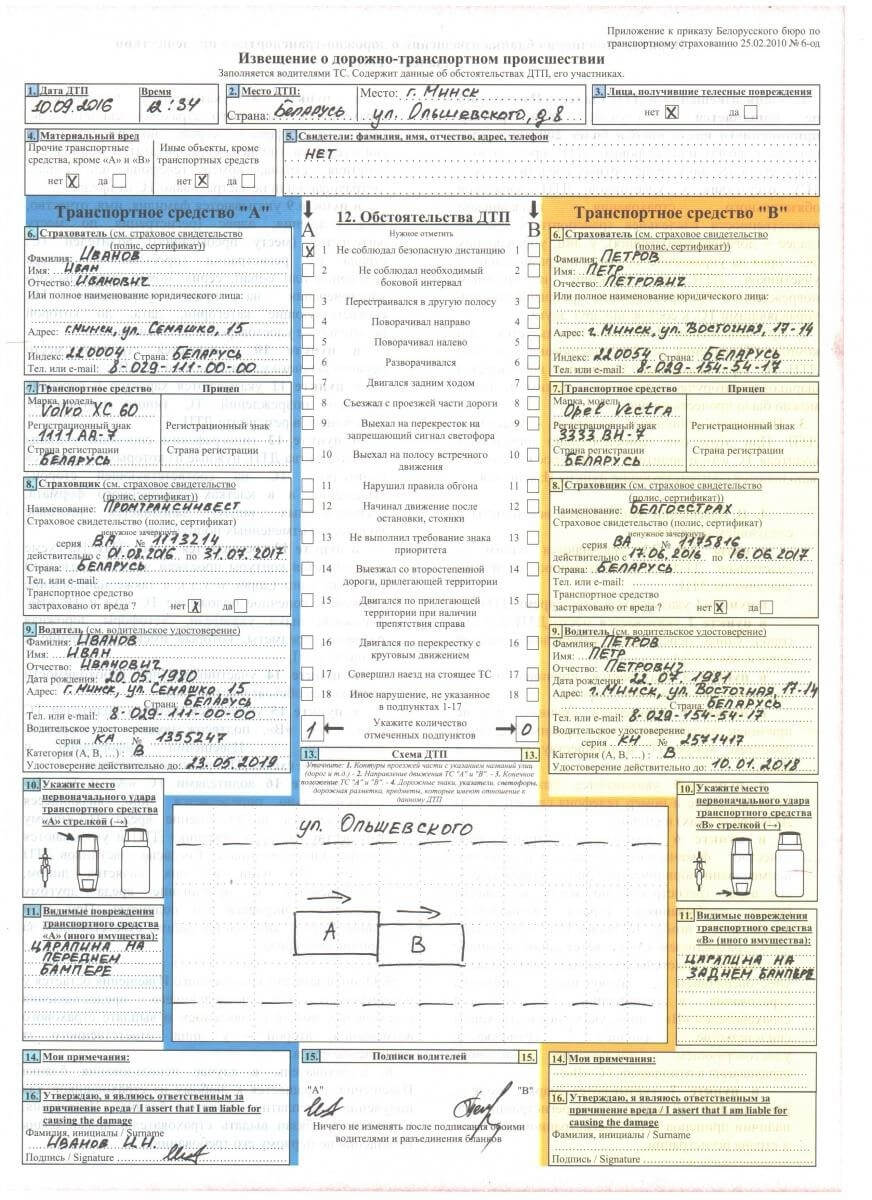 Приложение к приказу Белорусского бюро по
транспортному страхованию 25.02.2010 № 6-од
Извещение о дорожно-транспортном происшествии
Заполняется водителями ТС. Содержит данные об обстоятельствах ДТП, его участниках.
1. Дата ДТП Время
10.09.2016 12:34
2. Место ДТП: Место: г. Минск
Страна: Беларусь ул. Ольшевского, д.8
3. Лица, получившие телесные повреждения
нет X да
4. Материальный вред
Прочие транспортные средства, кроме «А» и «В»
нет X да
Иные объекты, кроме транспортных средств
нет X да
5. Свидетели: фамилия, имя, отчество, адрес, телефон
НЕТ
Транспортное средство "А"
6. Страхователь (см. страховое свидетельство
(полис, сертификат))
Фамилия: ИВАНОВ
Имя: ИВАН
Отчество: ИВАНОВИЧ
Или полное наименование юридического лица:
Адрес: г.Минск, ул. Семашко, 15
Индекс: 220004 Страна: БЕЛАРУСЬ
Тел. или e-mail: 8-029-111-00-00
7. Транспортное средство Прицеп
Марка, модель
Volvo XC 60
Регистрационный знак Регистрационный знак
1111 АА-7
Страна регистрации Страна регистрации
БЕЛАРУСЬ
8. Страховщик (см. страховое свидетельство
(полис, сертификат))
Наименование: ПРОМТРАНСИНВЕСТ
Страховое свидетельство (полис, сертификат)
ненужное зачеркнуть
серия ВА № 1113214
действительно с 01.08.2016 по 31.07.2017
Страна: БЕЛАРУСЬ
Тел. или e-mail:
Транспортное средство
застраховано от вреда ? нет X да
9. Водитель (см. водительское удостоверение)
Фамилия: ИВАНОВ
Имя: ИВАН
Отчество: ИВАНОВИЧ
Дата рождения: 20.05.1980
Адрес: г.Минск, ул. Семашко 15
Страна: БЕЛАРУСЬ
Тел. или e-mail: 8-029-111-00-00
Водительское удостоверение
серия КА № 1355247
Категория (А, В, ...) : В
Удостоверение действительно до: 23.05.2019
А 12. Обстоятельства ДТП В
Нужное отметить
X 1 Не соблюдал безопасную дистанцию 1
2 Не соблюдал необходимый 2
боковой интервал
3 Перестраивался в другую полосу 3
4 Поворачивал направо 4
5 Поворачивал налево 5
6 Разворачивался 6
7 Двигался задним ходом 7
8 Съезжал с проезжей части дороги 8
9 Выехал на перекресток на 9
запрещающий сигнал светофора
10 Выехал на полосу встречного 10
движения
11 Нарушил правила обгона 11
12 Начинал движение после 12
остановки, стоянки
13 Не выполнил требование знака 13
приоритета
14 Выезжал со второстепенной 14
дороги, прилегающей территории
15 Двигался по прилегающей 15
территории при наличии
препятствия справа
16 Двигался по перекрестку с 16
круговым движением
17 Совершил наезд на стоящее ТС 17
18 Иное нарушение, не указанное 18
в подпунктах 1-17
1 Укажите количество 0
отмеченных подпунктов
Транспортное средство "В"
6. Страхователь (см. страховое свидетельство
(полис, сертификат))
Фамилия: ПЕТРОВ
Имя: ПЕТР
Отчество: ПЕТРОВИЧ
Или полное наименование юридического лица:
Адрес: г. Минск, ул. Восточная, 17-14
Индекс: 220054 Страна: БЕЛАРУСЬ
Тел. или e-mail: 8-029-154-54-17
7. Транспортное средство Прицеп
Марка, модель
Opel Vectra
Регистрационный знак Регистрационный знак
3333 ВН-7
Страна регистрации Страна регистрации
БЕЛАРУСЬ
8. Страховщик (см. страховое свидетельство
(полис, сертификат))
Наименование: БЕЛГОССТРАХ
Страховое свидетельство (полис, сертификат)
ненужное зачеркнуть
серия ВА № 1175816
действительно с 17.06.2016 по 16.06.2017
Страна: БЕЛАРУСЬ
Тел. или e-mail:
Транспортное средство
застраховано от вреда ? нет X да
9. Водитель (см. водительское удостоверение)
Фамилия: ПЕТРОВ
Имя: ПЕТР
Отчество: ПЕТРОВИЧ
Дата рождения: 22.07.1981
Адрес: г.Минск, ул. Восточная, 17-14
Страна: БЕЛАРУСЬ
Тел. или e-mail: 8-029-154-54-17
Водительское удостоверение
серия КН № 2571417
Категория (А, В, ...) : В
Удостоверение действительно до: 10.01.2018
13. Схема ДТП 13.
Уточните: 1. Контуры проезжей части с указанием названий улиц
(дорог и т.д.) - 2. Направление движения ТС "А" и "В" - 3. Конечное
положение ТС "А" и "В" - 4. Дорожные знаки, указатели, светофоры,
дорожная разметка, предметы, которые имеют отношение к
данному ДТП
ул. Ольшевского
А
В
10. Укажите место
первоначального удара
транспортного средства
«А» стрелкой (→)
11. Видимые повреждения
транспортного средства
«А» (иного имущества):
ЦАРАПИНА НА
ПЕРЕДНЕМ
БАМПЕРЕ
10. Укажите место
первоначального удара
транспортного средства
«В» стрелкой (→)
11. Видимые повреждения
транспортного средства
«В» (иного имущества):
ЦАРАПИНА НА
ЗАДНЕМ БАМПЕРЕ
14. Мои примечания:
16. Утверждаю, я являюсь ответственным за
причинение вреда / I assert that I am liable for
causing the damage
Фамилия, инициалы / Surname
ИВАНОВ И.И.
Подпись / Signature
15. Подписи водителей 15.
"А" "В"
Ничего не изменять после подписания обоими
водителями и разъединения бланков
14. Мои примечания:
16. Утверждаю, я являюсь ответственным за
причинение вреда / I assert that I am liable for
causing the damage
Фамилия, инициалы / Surname
Подпись / Signature